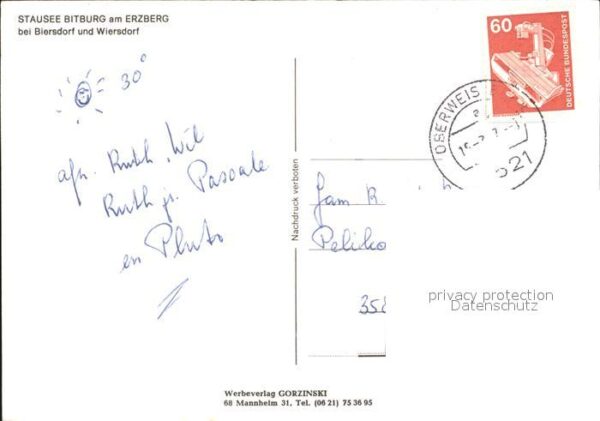 STAUSEE BITBURG am ERZBERG
bei Biersdorf und Wiersdorf
30°
afz. Ruth, Wil
Ruth jr. Pascale
en Pluto
Nachdruck verboten
60
DEUTSCHE BUNDESPOST
OBERWEIS
521
Fam R
Peliko
358
privacy protection
Datenschutz
Werbeverlag GORZINSKI
68 Mannheim 31, Tel. (06 21) 75 36 95